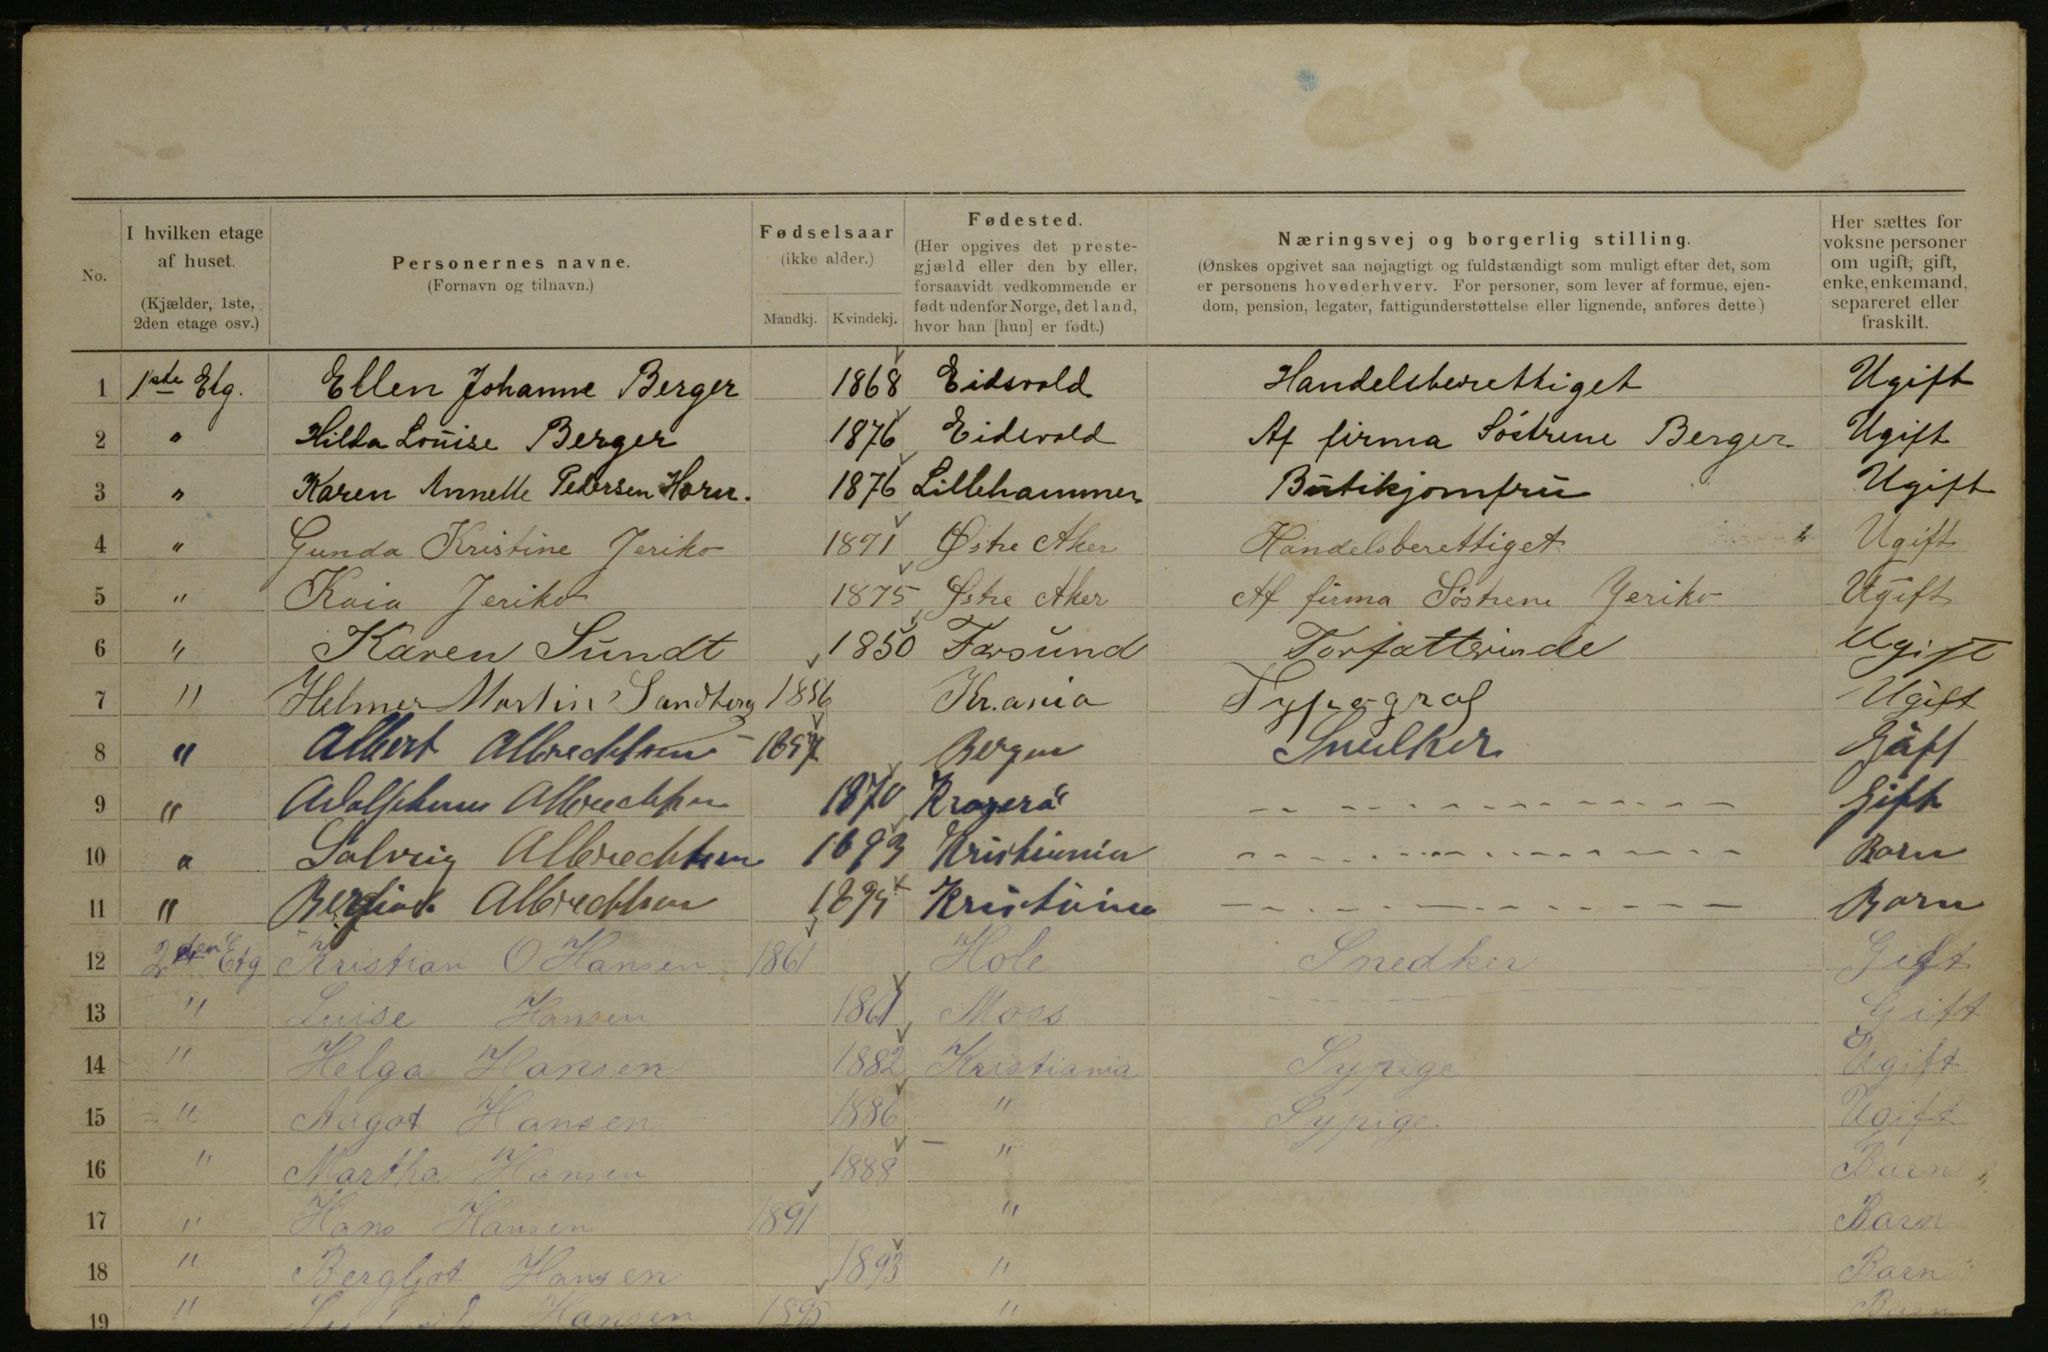 No.
I hvilken etage af huset. (Kjælder, 1ste, 2den etage osv.)
Personernes navne. (Fornavn og tilnavn.)
Fødselsaar (ikke alder.) Mandkj. Kvindekj.
Fødested. (Her opgives det prestegjæld eller den by eller, forsaavidt vedkommende er født udenfor Norge, det land, hvor han [hun] er født.)
Næringsvej og borgerlig stilling. (Ønskes opgivet saa nøjagtigt og fuldstændigt som muligt efter det, som er personens hovederhverv. For personer, som lever af formue, ejendom, pension, legater, fattigunderstøttelse eller lignende, anføres dette.)
Her sættes for voksne personer om ugift, gift, enke, enkemand, separeret eller fraskilt.
1 1ste Etg. Ellen Johanne Berger 1868 Eidsvold Handelsberettiget Ugift
2 " Hilda Louise Berger 1876 Eidsvold Af firma Söstrene Berger Ugift
3 " Karen Annette Pedersen Horn. 1876 Lillehammer Butikjomfru Ugift
4 " Gunda Kristine Jeriko 1871 Østre Aker Handelsberettiget Ugift
5 " Kaia Jeriko 1875 Østre Aker Af firma Söstrene Jeriko Ugift
6 " Karen Sundt 1850 Farsund Forfatterinde Ugift
7 " Helmer Martin Sandberg 1856 Kr.ania Typograf Ugift
8 " Albert Albrechtsen 1857 Bergen Snedker Gift
9 " Albrechtsen 1870 Kragerö Gift
10 " Solveig Albrechtsen 1893 Kristiania Barn
11 " Bergliot Albrechtsen Kristiania Barn
12 2den Etg Kristian O Hansen 1861 Hole Snedker Gift
13 " Luise Hansen 1861 Moss Gift
14 " Helga Hansen 1882 Kristiania Sypige Ugift
15 " Aagot Hansen 1886 " Sypige Ugift
16 " Martha Hansen 1888 " Barn
17 " Hans Hansen 1891 " Barn
18 " Bergljot Hansen 1893 " Barn
19 " Hansen 1895 " Barn